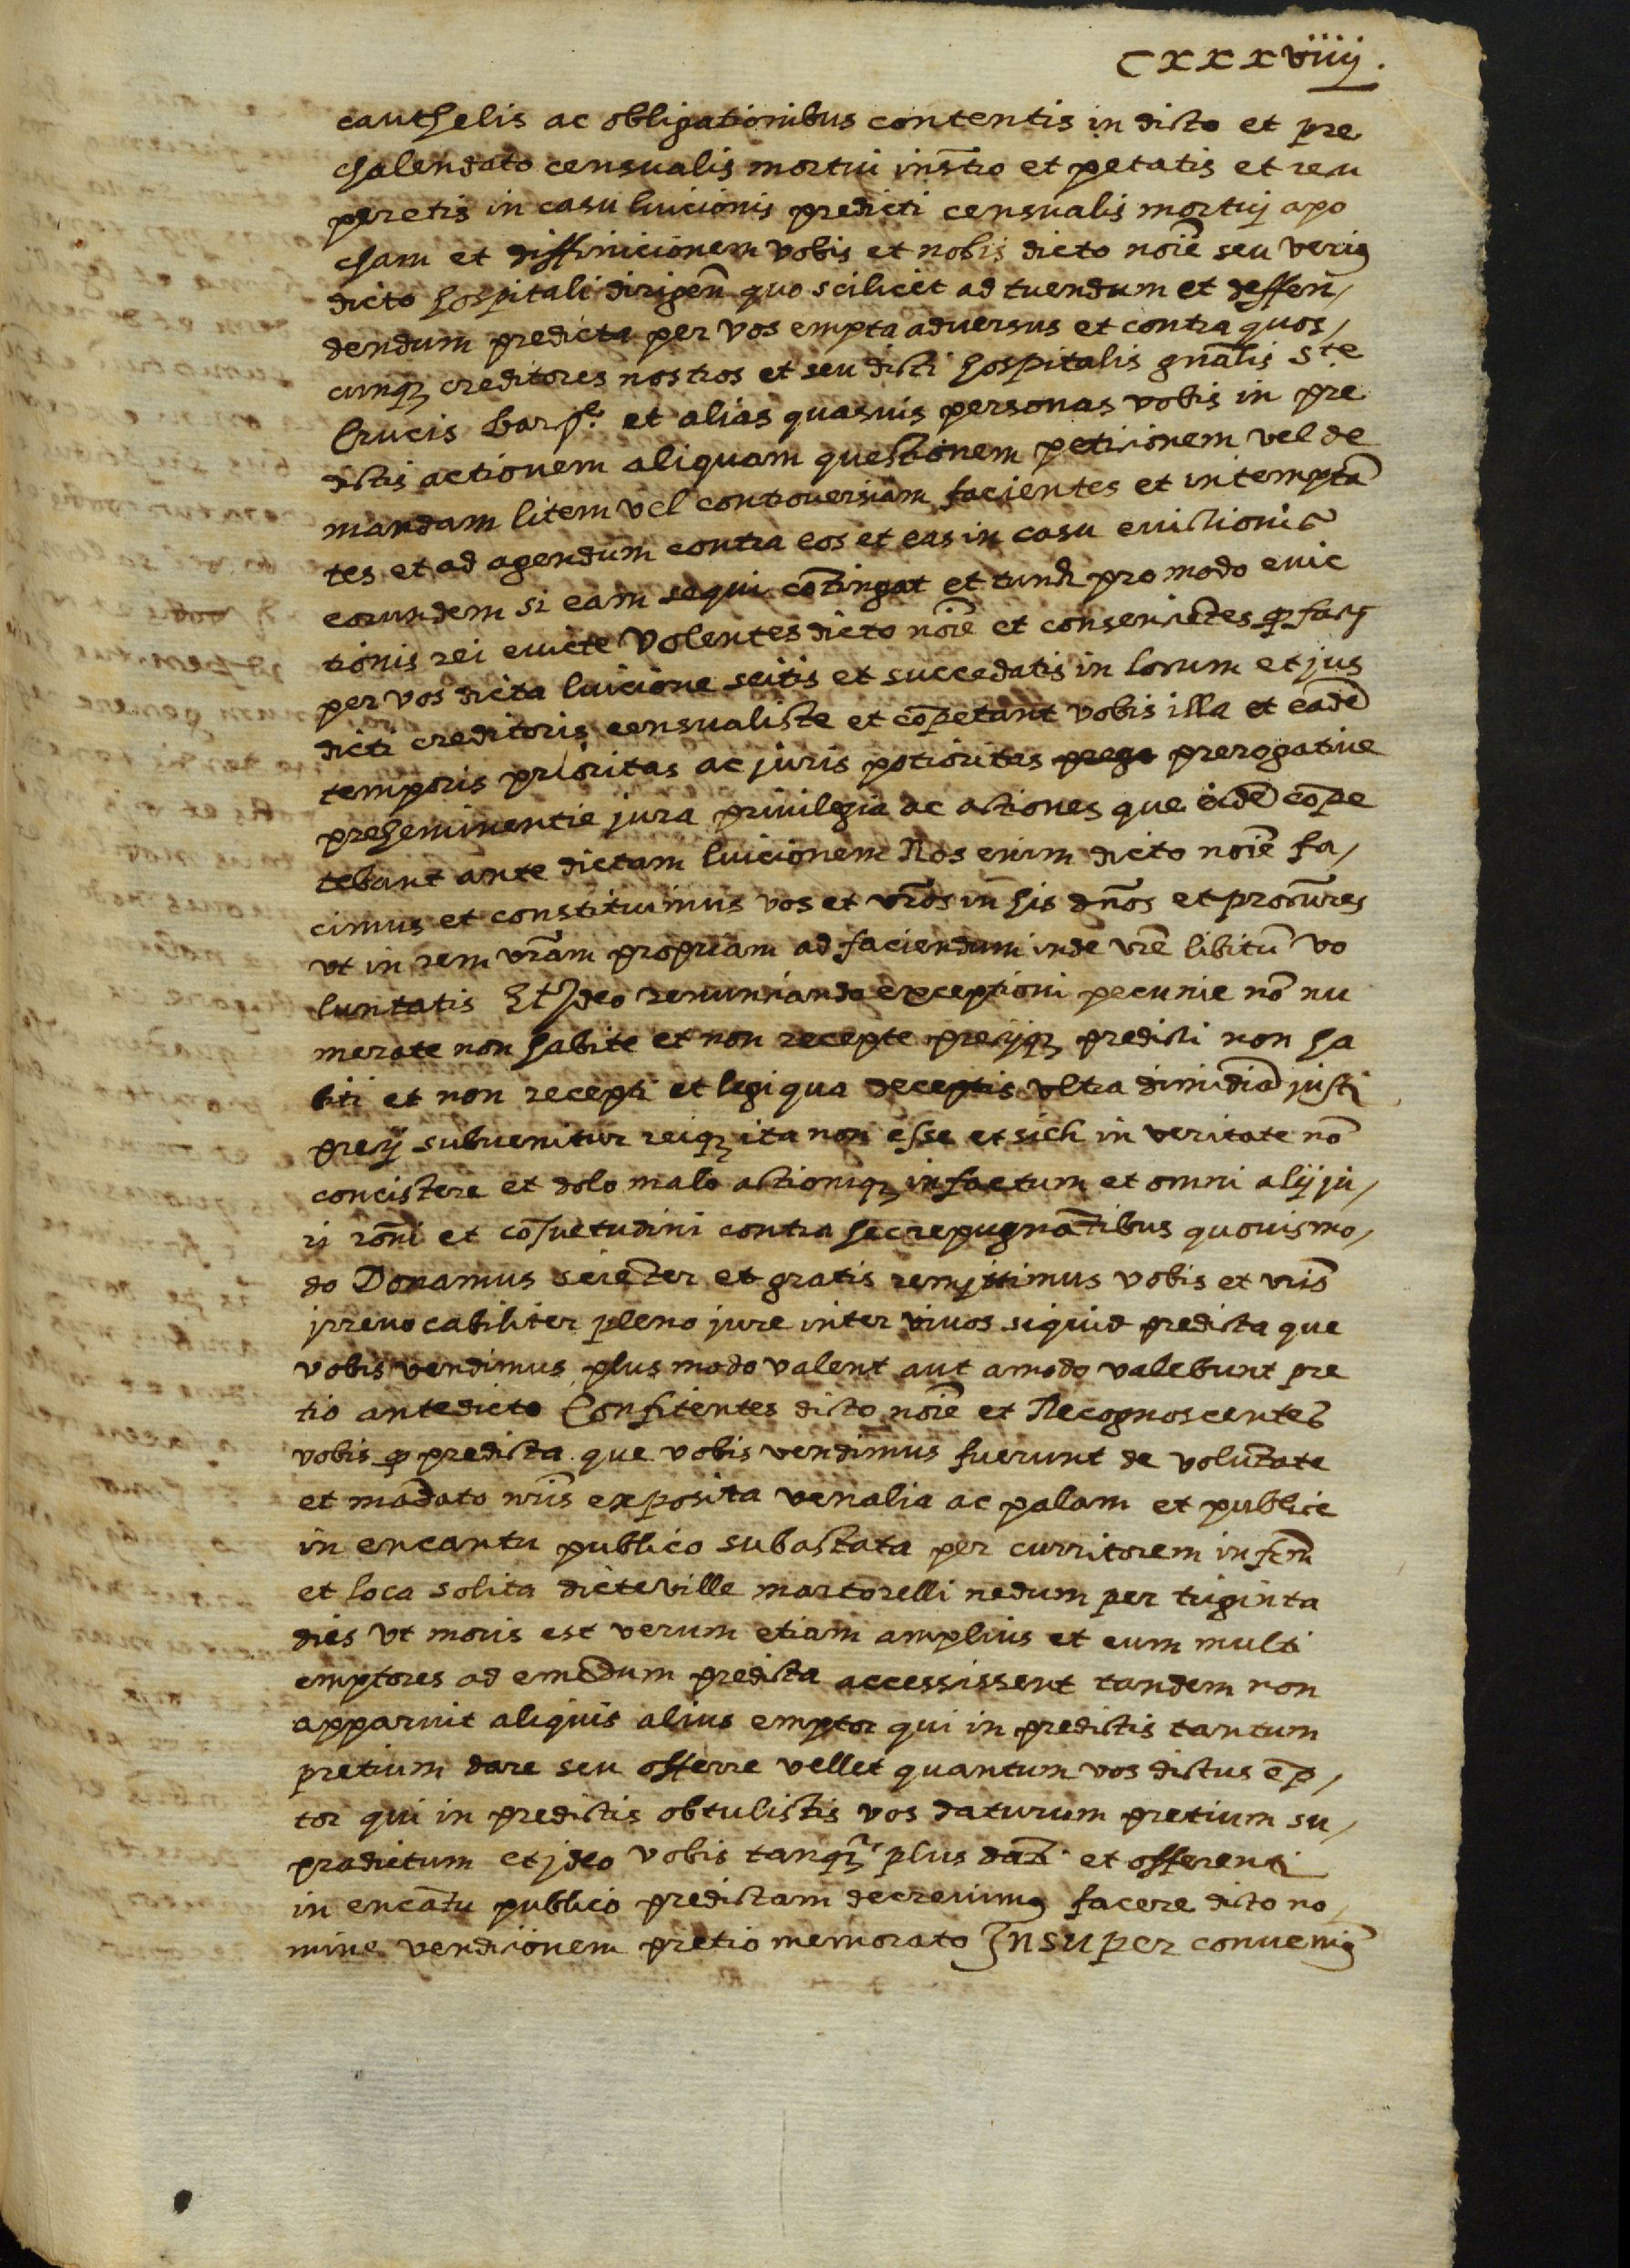 CXXXviiij.
cauthelis ac obligationibus contentis in dicto et pre
chalendato censualis mortui instro et petatis et recu
peretis in casu luicionis predicti censualis mortuj apo
cham et diffinicionem vobis et nobis dicto noie seu verius
dicto hospitali dirigen quo scilicet ad tuendum et deffen/
dendum predicta per vos empta adversus et contra quos/
cunq creditores nostros et seu dicti hospitalis gnalis Ste
Crucis bar et alias quasuis personas vobis in pre
dictis actionem aliquam questionem peticionem vel de
mandam litem vel controversiam facientes et intempta
tes et ad agendum contra eos et eas in casu euictionis
eorundem si eam sequi contingat et tundi pro modo euic
tionis rei euicte Volentes dicto noie et consencientes q facta
per vos dicta luicione scitis et succedatis in locum et jus
dicti creditoris censualiste et copetant vobis illa et eade
temporis prioritas ac juris potioritas prego prerogatiue
preheminentie jura priuilegia ac actiones que eide cope
tebant ante dictam luicionem Nos enim dicto noie fa/
cimus et constituimus vos et vros in his dnos et procures
vt in rem vram propriam ad faciendum inde vre libitu vo
luntatis Et Ideo renunciando exceptioni pecunie no nu
merate non habite et non recepte precijq predicti non ha
biti et non recepti et legi qua deceptis vltra dimidia justi
precij subuenitur reiq ita non esse et sich in veritate no
concistere et dolo malo actioniq in factum et omni alij ju/
ri roni et cosuetudini contra hec repugnatibus quouismo/
do Donamus scienter et gratis remittimus vobis et vris
jrreuocabiliter pleno jure inter viuos siquid predicta que
vobis vendimus plus modo valent aut amodo valebunt pre
tio antedicto Confitentes dicto noie et Recognoscentes
vobis q predicta que vobis vendimus fuerunt de volutate
et madato nris exposita venalia ac palam et publice
in encantu publico subastata per curritorem infrm
et loca solita dicte ville martorelli nedum per triginta
dies vt moris est verum etiam amplius et cum multi
emptores ad emedum predicta accessissent tandem non
apparuit aliquis alius emptor qui in predictis tantum
pretium dare seu offerre vellet quantum vos dictus ep/
tor qui in predictis obtulistis vos daturum pretium su/
pradictum et jdeo vobis tanq plus dati et offerenti
in encatu publico predictam decreuimus facere dicto no/
mine vendicionem pretio memorato Insuper conuenius